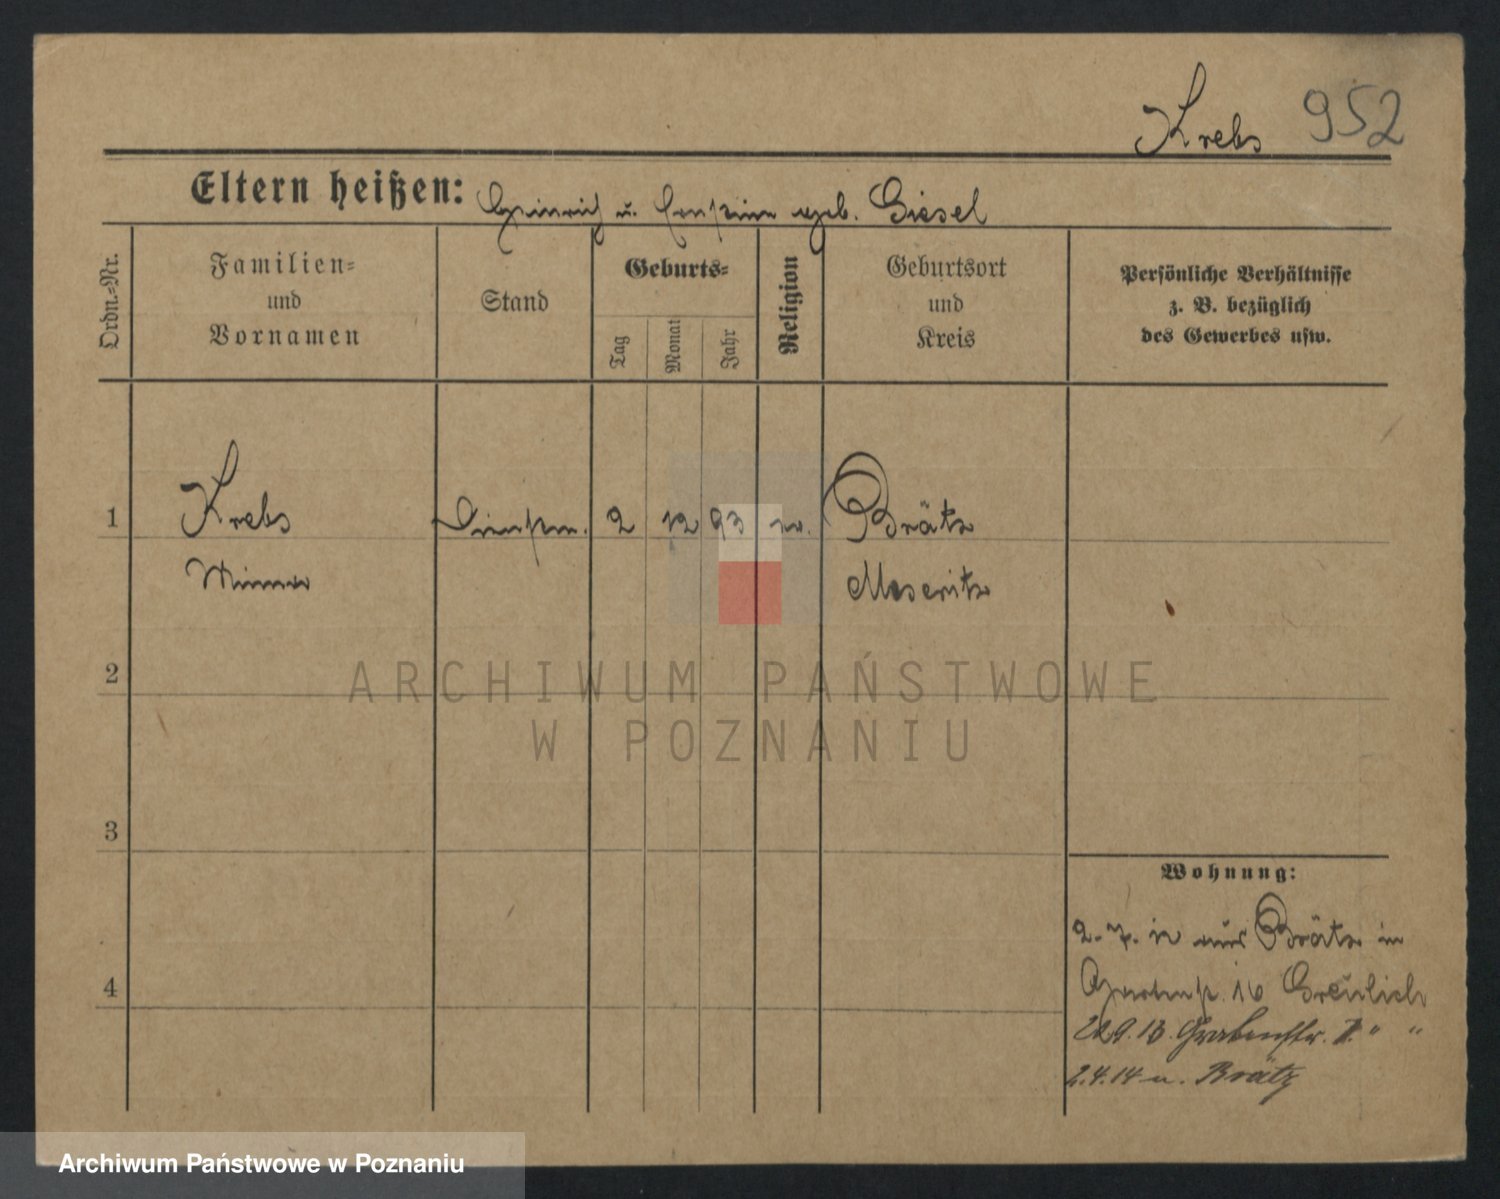 Krebs 952
Eltern heißen: Heinrich u. Ernstine geb. Giesel
Ordn.-Nr.
Familien-
und
Vornamen
Stand
Geburts-
Tag
Monat
Jahr
Religion
Geburtsort
und
Kreis
Persönliche Verhältnisse
z. B. bezüglich
des Gewerbes usw.
1 Krebs Dienstm. 2 12 93 ev. Brätz
Minna Meseritz
2
3
4
ARCHIWUM PAŃSTWOWE
W POZNANIU
Wohnung:
2. 7. 12 aus Brätz in
16 Greulich
9. 13. Grabenstr. 7. " "
2.4.14 n. Brätz
Archiwum Państwowe w Poznaniu